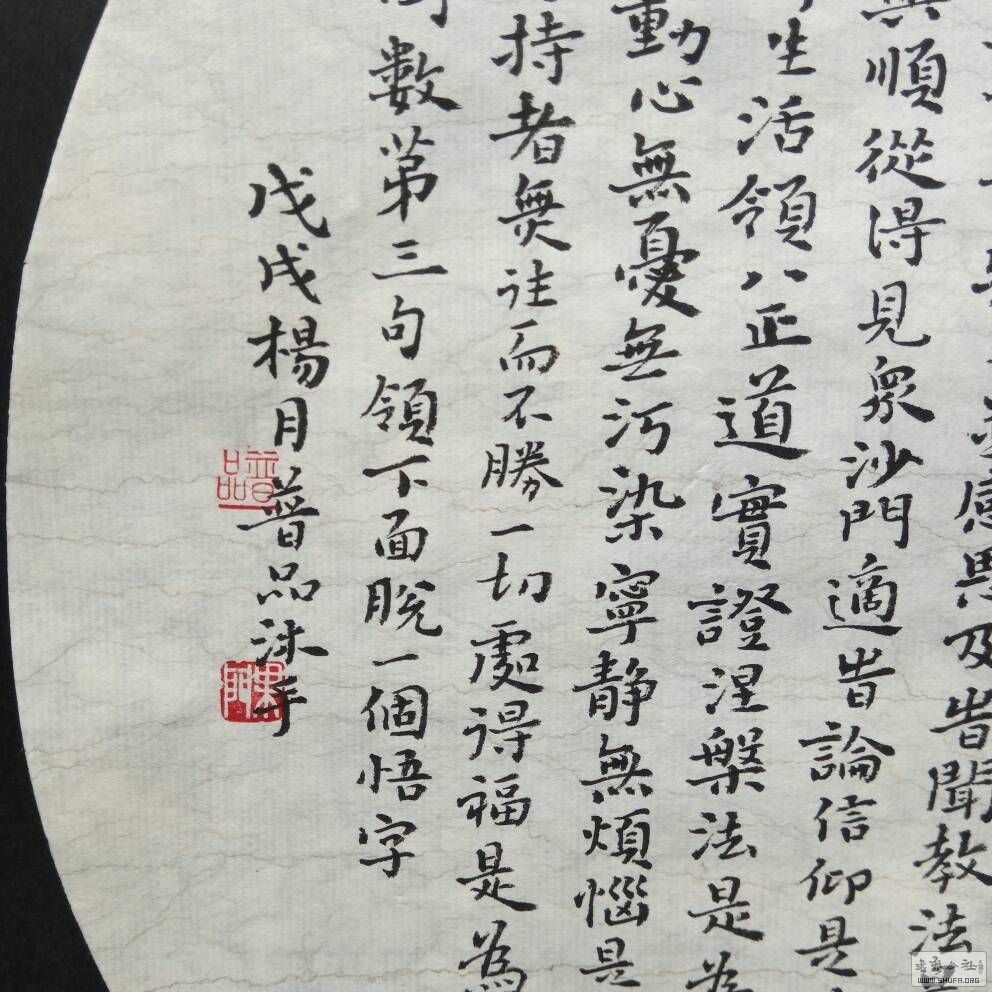 感恩及旹聞教法
順從得見眾沙門適旹論信仰是
生活領八正道實證涅槃法是為
動心無憂無污染寧靜無煩惱是
持者無往而不勝一切處得福是為
數第三句領下面脫一個悟字
戊戌楊月普品沐手
普品
書法公社
WWW.SHUFA.ORG